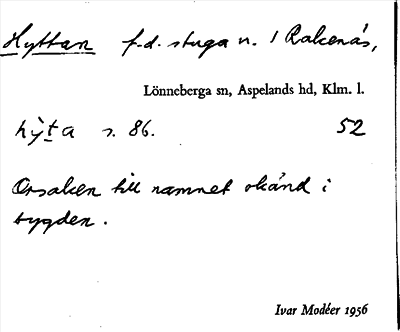 Hyttan f.d. stuga u. / Rakenäs,
Lönneberga sn, Aspelands hd, Klm. l.
hỳta s. 86. 52
Orsaken till namnet okänd i
bygden.
Ivar Modéer 1956